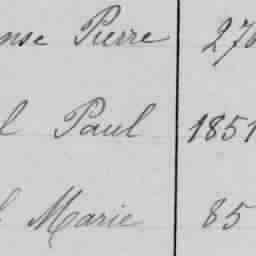 nse Pierre 276
l Paul 1851
l Marie 85